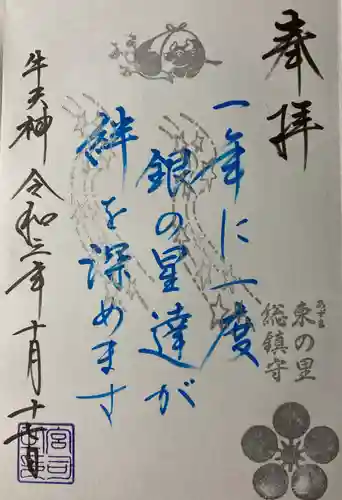 奉拝
東の里
あずま
総鎮守
一年に一度
銀の星達が
絆を深めます
牛天神 令和三年 十月 十七日
宮司